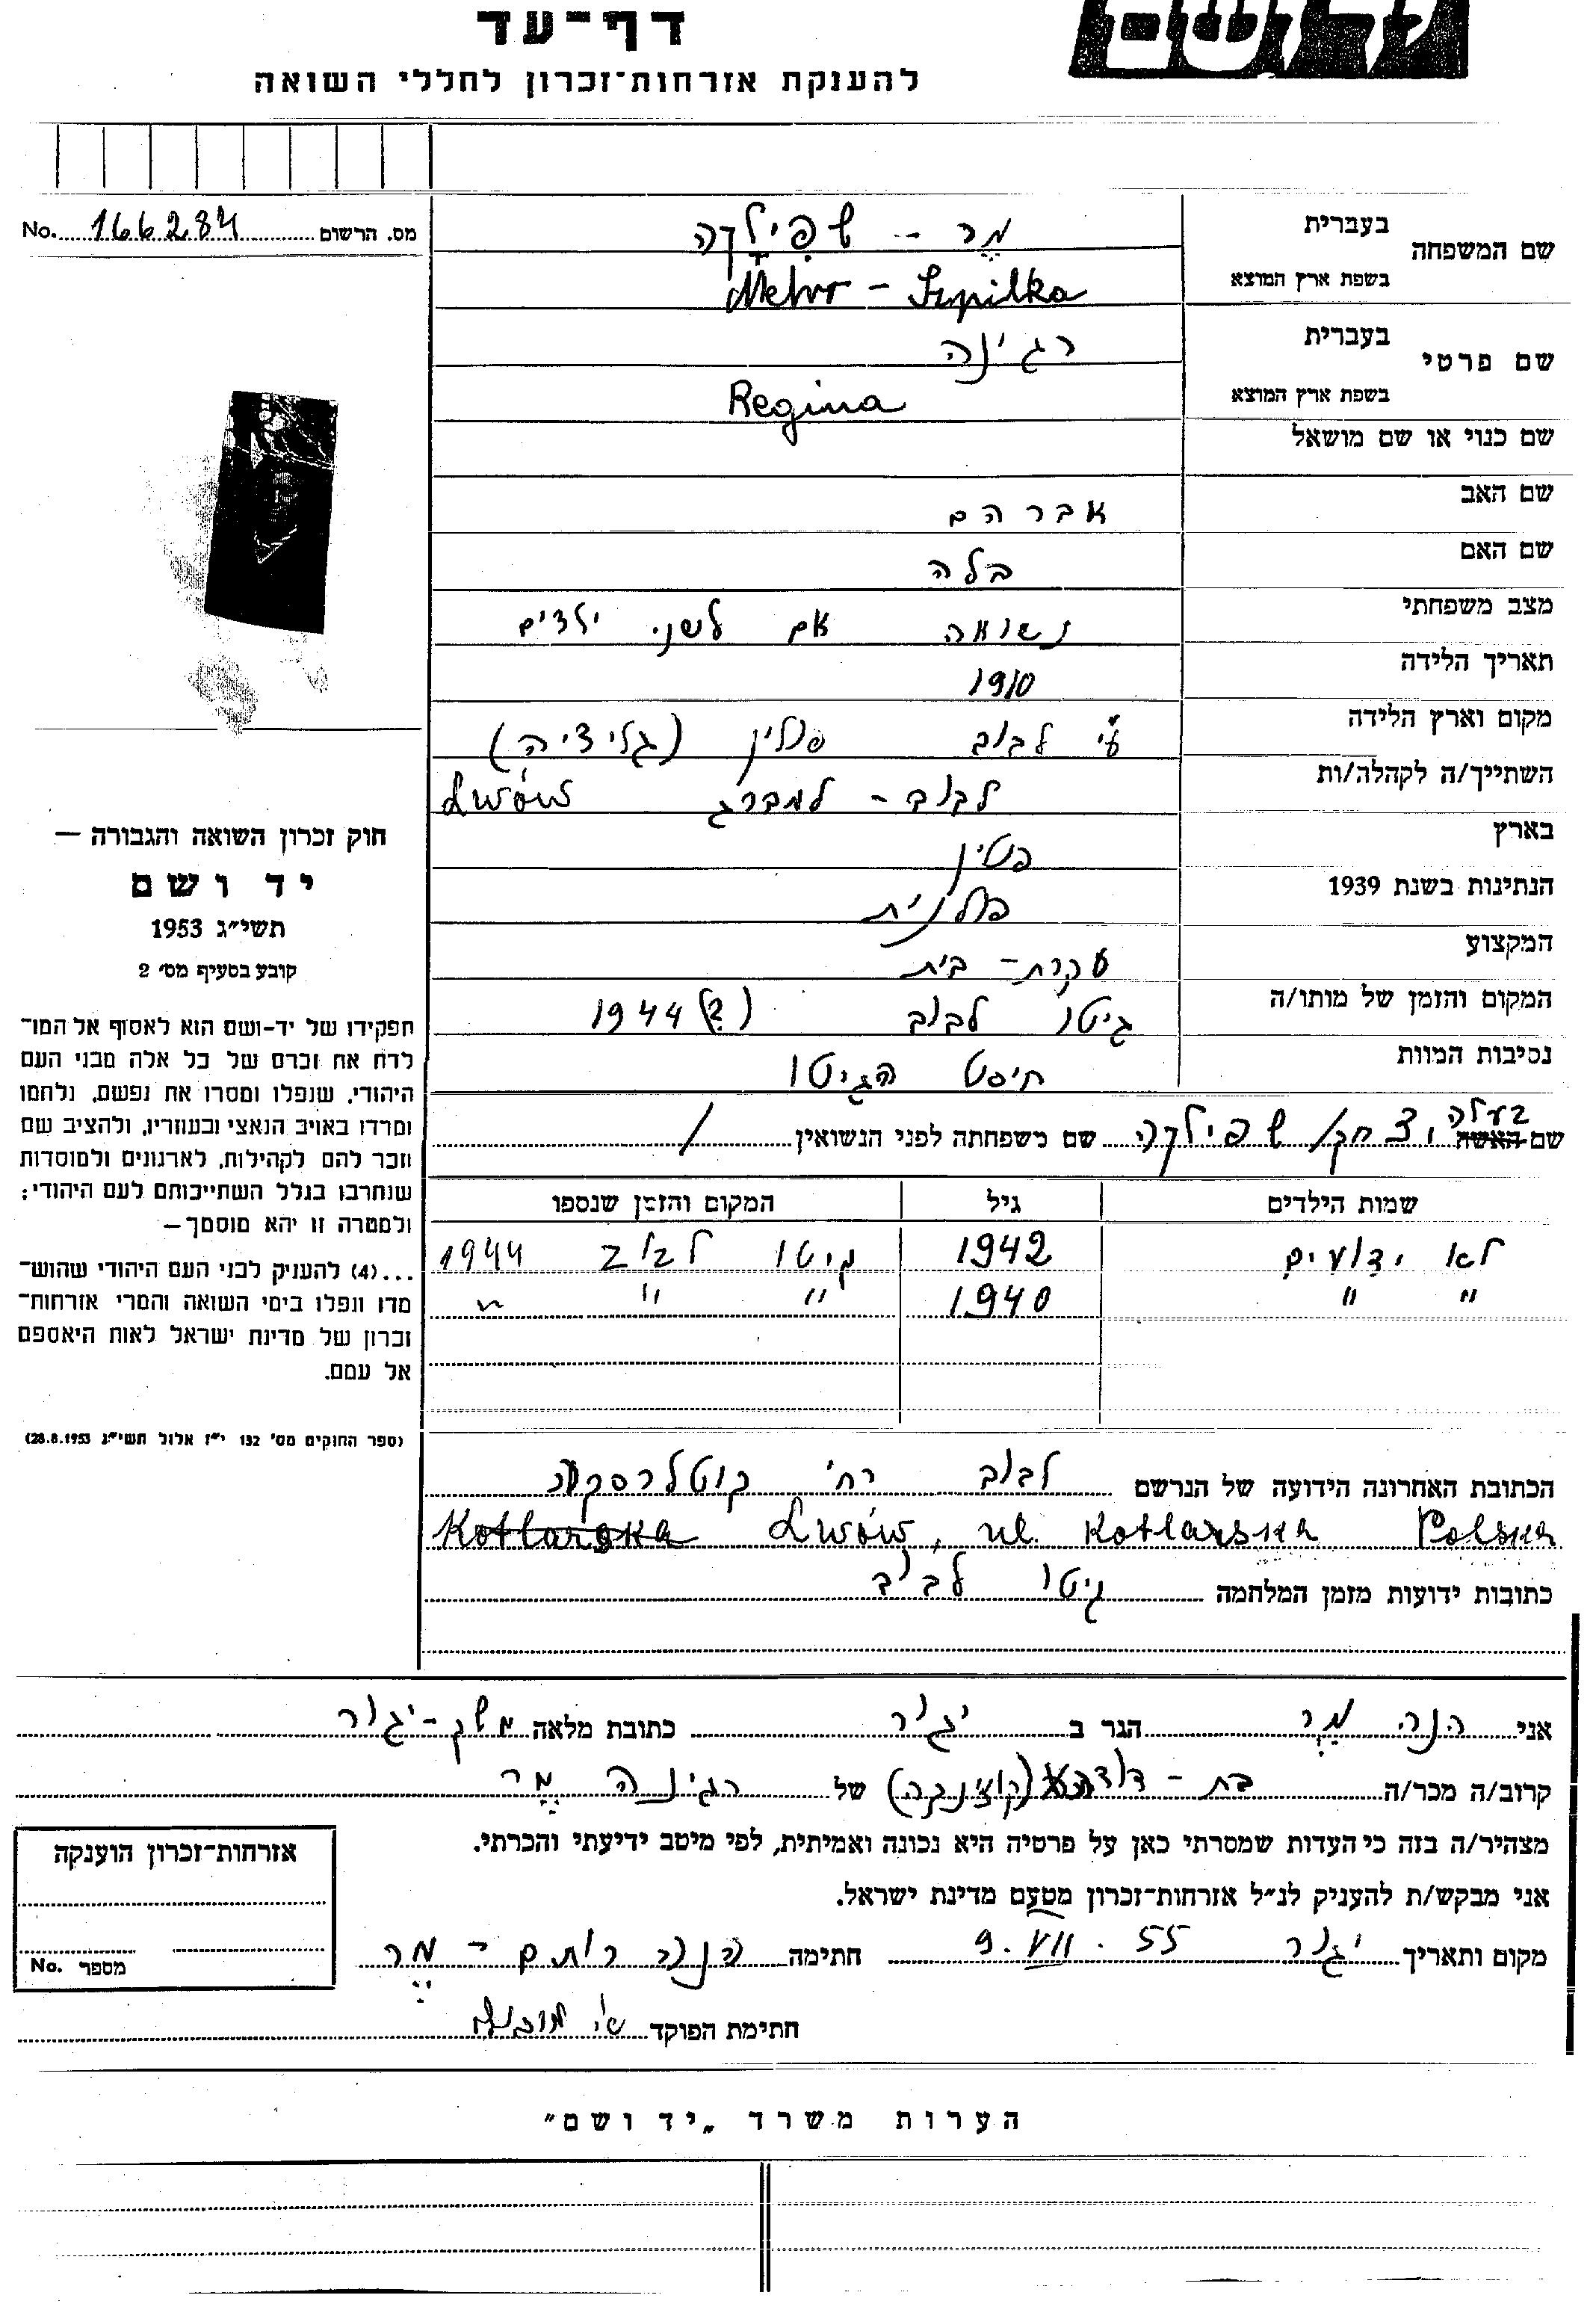 דף־עד
להענקת אזרחות־זכרון לחללי השואה
מס. הרשום 166284 No.
שם המשפחה
בעברית מר - שפילקה
בשפת ארץ המוצא Mehr - Szpilka
שם פרטי
בעברית רגינה
בשפת ארץ המוצא Regina
שם כנוי או שם מושאל
שם האב אברהם
שם האם בלה
מצב משפחתי נשואה אם לשני ילדים
תאריך הלידה 1910
מקום וארץ הלידה ע"י לבוב פולין (גליציה)
השתייך/ה לקהלה/ות לבוב - למברג Lwów
בארץ פולין
הנתינות בשנת 1939 פולנית
המקצוע עקרת-בית
המקום והזמן של מותו/ה גיטו לבוב 1944 (?)
נסיבות המוות חיסול הגיטו
שם האשה בעלה יצחק שפילקה שם משפחתה לפני הנשואין /
שמות הילדים גיל המקום והזמן שנספו
לא ידועים 1942 גיטו לבוב 1944
" " 1940 " " "
הכתובת האחרונה הידועה של הנרשם לבוב רח' קוטלרסקה
Kotlarska Lwów, ul. Kotlarska Polska
כתובות ידועות מזמן המלחמה גיטו לבוב
חוק זכרון השואה והגבורה —
יד ושם
תשי"ג 1953
קובע בסעיף מס' 2
תפקידו של יד-ושם הוא לאסוף אל המו־
לדת את זכרם של כל אלה מבני העם
היהודי, שנפלו ומסרו את נפשם, נלחמו
ומרדו באויב הנאצי ובעוזריו, ולהציב שם
וזכר להם לקהילות, לארגונים ולמוסדות
שנחרבו בגלל השתייכותם לעם היהודי;
ולמטרה זו יהא מוסמך —
...(4) להעניק לבני העם היהודי שהוש־
מדו ונפלו בימי השואה והמרי אזרחות־
זכרון של מדינת ישראל לאות היאספם
אל עמם.
(ספר החוקים מס' 132 י"ז אלול תשי"ג 28.8.1953)
אני הנה מר הגר ב יגור כתובת מלאה משק-יגור
קרוב/ה מכר/ה בת-דודה (קוזינקה) של רגינה מר
מצהיר/ה בזה כי העדות שמסרתי כאן על פרטיה היא נכונה ואמיתית, לפי מיטב ידיעתי והכרתי.
אני מבקש/ת להעניק לנ"ל אזרחות־זכרון מטעם מדינת ישראל.
מקום ותאריך יגור 9.VII.55 חתימה הנה רותם-מר
חתימת הפוקד
אזרחות־זכרון הוענקה
מספר No.
הערות משרד „יד ושם"